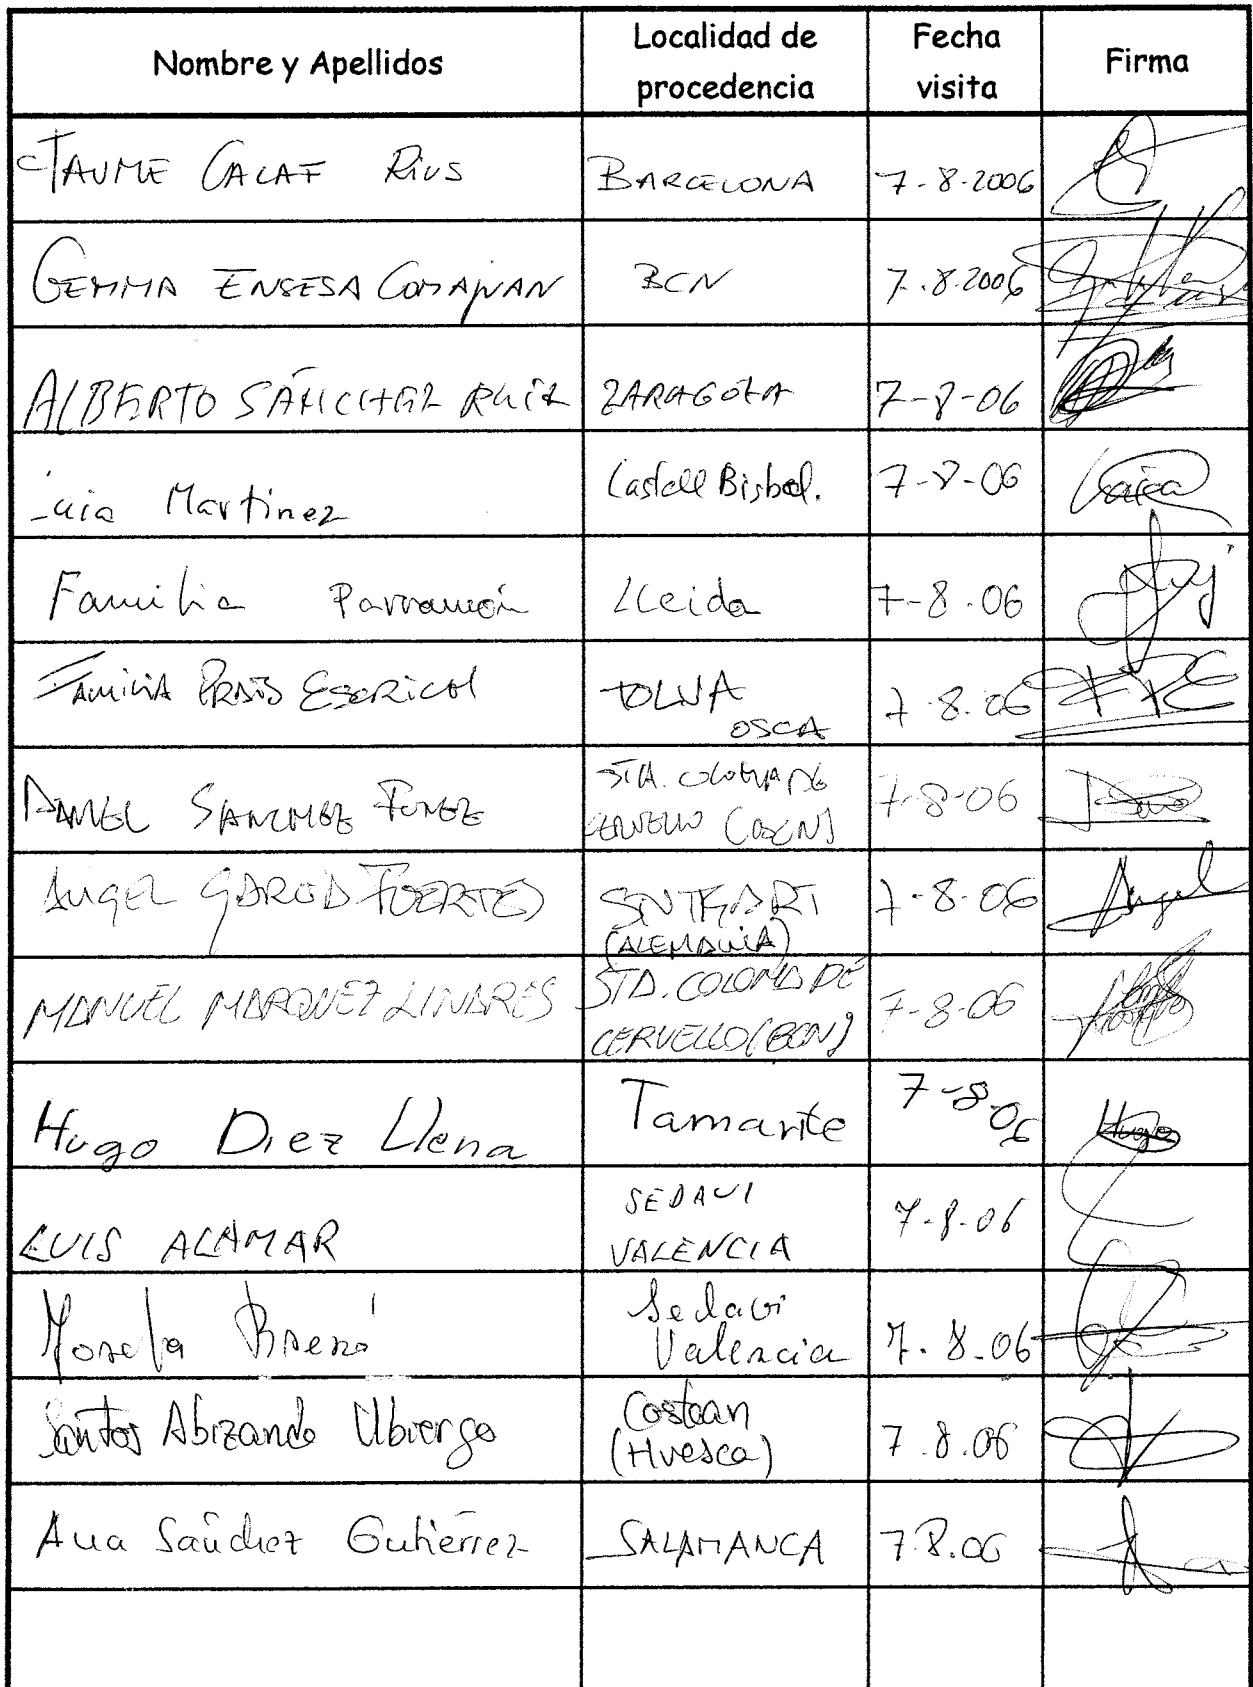 Nombre y Apellidos
Localidad de
procedencia
Fecha
visita
Firma
JAUME CALAF RIUS
BARCELONA
7-8-2006
GEMMA ENSESA
BCN
7.8.2006
ALBERTO SÁNCHEZ RUIZ
ZARAGOZA
7-8-06
Martinez
Castell Bisbal.
7-8-06
Familia Parramón
Lleida
7-8-06
FAMILIA ESCRICOL
TOLVA
OSCA
7.8.06
DANIEL SANCHEZ
STA. COLOMA DE
CERVELLO (BCN)
7-8-06
ANGEL FUERTES
(ALEMANIA)
7-8-06
Angel
MANUEL MARQUEZ LINARES
STA. COLOMA DE
CERVELLO (BCN)
7-8-06
Hugo Diez Llena
Tamarite
7-8-06
Hugo
LUIS ALAMAR
SEDAVI
VALENCIA
7-8-06
Sedavi
Valencia
7.8.06
Santos Abizanda Ubiergo
(Huesca)
7.8.06
Ana Sánchez Gutiérrez
SALAMANCA
7.8.06